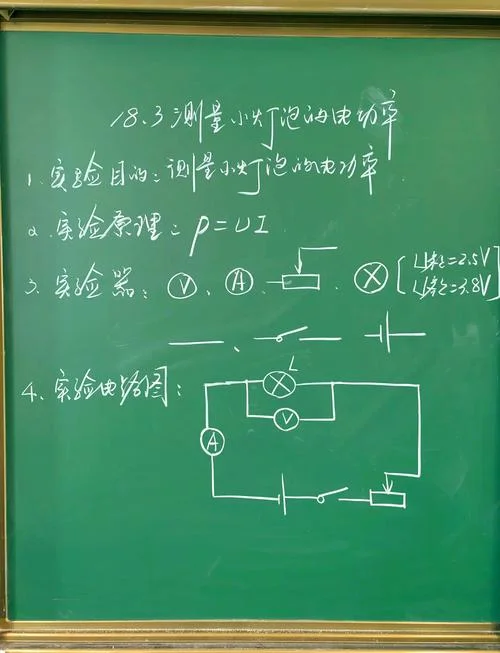 18.3 测量小灯泡的电功率
1. 实验目的：测量小灯泡的电功率
2. 实验原理：P=UI
3. 实验器：V、A、
X
U额=2.5V
U额=3.8V
、
4. 实验电路图：
L
X
V
A